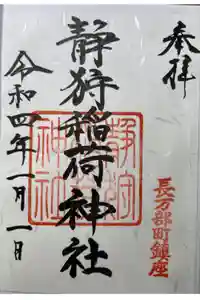 奉拝
長万部町鎮座
静狩稲荷神社
静狩神社
令和四年一月一日